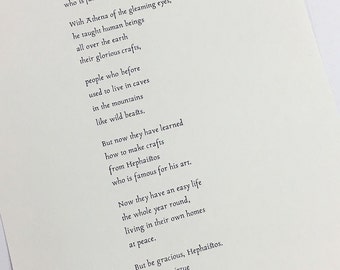 who is fa
With Athena of the gleaming eyes,
he taught human beings
all over the earth
their glorious crafts,
people who before
used to live in caves
in the mountains
like wild beasts.
But now they have learned
how to make crafts
from Hephaistos
who is famous for his art.
Now they have an easy life
the whole year round,
living in their own homes
at peace.
But be gracious, Hephaistos.